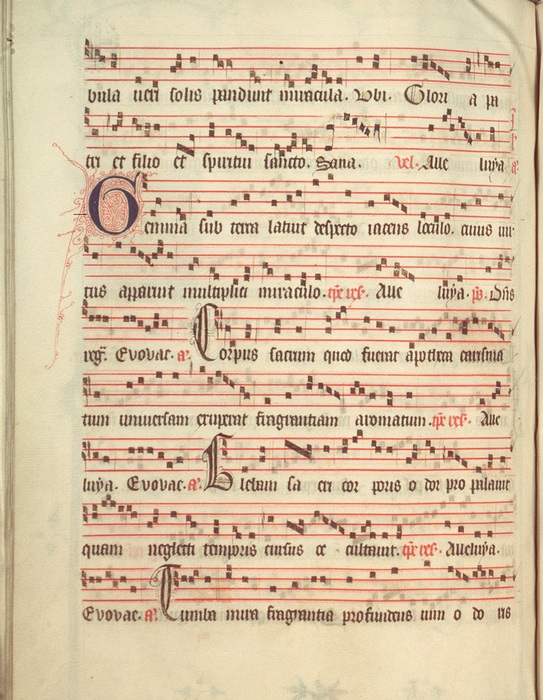 bula ueri solis pandunt miracula. Vbi. Glori a pa
tri et filio et spiritui sancto. Sana. vel. Alle luya a.
Gemma sub terra latuit despecto iacens loculo. cuius uir
tus apparuit multiplici miraculo. Alle luya. ps. Dns
reg. Evovae. a. Corpus sacrum quod fuerat
tum universam fragrantiam aromatum. Alle
luya. Evovae. a. sa cri cor poris o dor pro palauit
quam neglecti temporis cursus oc cultauit. Alleluya.
Evovae. a. Tumba mira fragrantia profundens uim o do ris